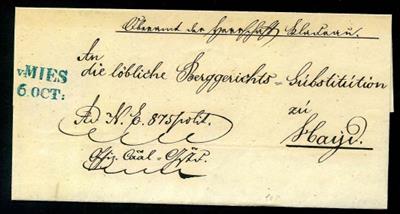 Oberamt der Herrschaft Kladrau.
v. MIES
6. OCT:
An
die löbliche Berggerichts-Substitution
zu
Hayd.
Ad N. E. 875 polit.